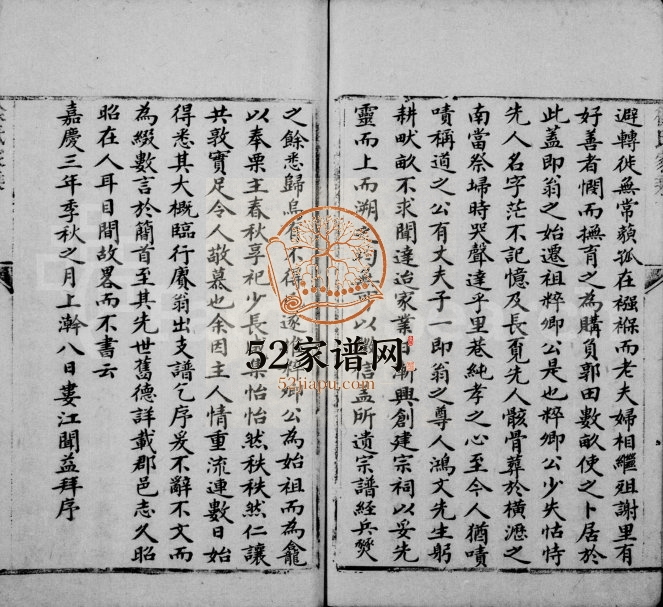 避轉徙無常藐孤在襁褓而老夫婦相繼殂謝里有
好善者憫而撫育之為購負郭田數畝使之卜居於
此蓋即翁之始遷祖粹卿公是也粹卿公少失怙恃
先人名字茫不記憶及長覓先人骸骨葬於橫瀝之
南當祭埽時哭聲達乎里巷純孝之心至今人猶嘖
嘖稱道之公有丈夫子一即翁之尊人鴻文先生躬
耕畎畝不求聞達迨家業漸興創建宗祠以妥先
靈而上而溯之均以信孟所遺宗譜經兵燹
之餘悉歸烏有不得逐粹卿公為始祖而為龕
以奉栗主春秋享祀少長怡怡然秩秩然仁讓
共敦實足令人敬慕也余因主人情重流連數日始
得悉其大概臨行賡翁出支譜乞序爰不辭不文而
為綴數言於簡首至其先世舊德詳載郡邑志久昭
昭在人耳目間故畧而不書云
嘉慶三年季秋之月上澣八日婁江聞益拜序
52家谱网
52jiapu.com